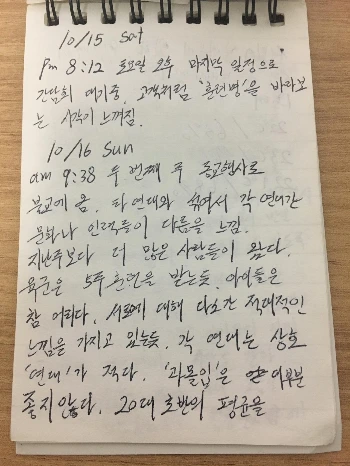 10/15 Sat
Pm 8:12 토요일 오후 마지막 일정으로
간담회 대기중. 고객처럼 '훈련병'을 바라보
는 시각이 느껴짐.
10/16 Sun
am 9:38 두 번째 주 종교행사로
불교에 옴. 타 연대와 섞여서 각 연대간
문화나 인력들이 다름을 느낌.
지난주보다 더 많은 사람들이 왔다.
육군은 5주 훈련을 받는듯. 아이들은
참 어리다. 서로에 대해 다소간 적대적인
느낌을 가지고 있는듯. 각 연대는 상호
'연대'가 적다. '과몰입'은 대부분
좋지 않다. 20대 초반의 평균을